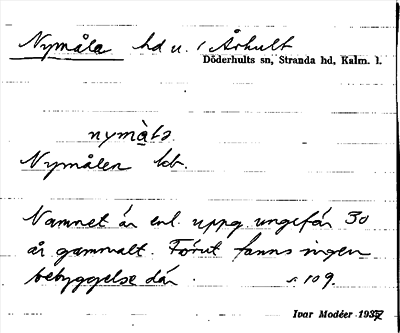 Nymåla hd u. / Århult
Döderhults sn, Stranda hd, Kalm. l.
nymåla
Nymålen kb.
Namnet är enl. uppg. ungefär 30
år gammalt. Förut fanns ingen
bebyggelse där. s. 109.
Ivar Modéer 1937